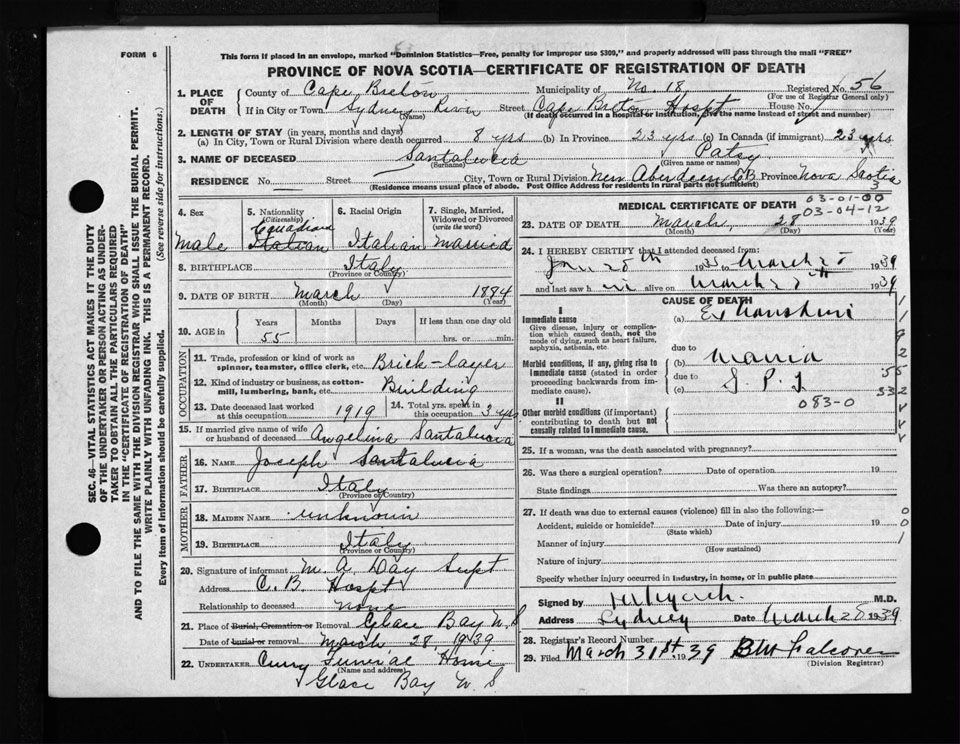 FORM 6
This form if placed in an envelope, marked "Dominion Statistics—Free, penalty for improper use $300," and properly addressed will pass through the mail "FREE"
PROVINCE OF NOVA SCOTIA—CERTIFICATE OF REGISTRATION OF DEATH
1. PLACE OF DEATH County of Cape Breton Municipality of No. 18 Registered No. 56
(For use of Registrar General only)
If in City or Town Sydney River Street Cape Breton Hospt House No.
(Name) (If death occurred in a hospital or institution, give its name instead of street and number)
2. LENGTH OF STAY (in years, months and days)
(a) In City, Town or Rural Division where death occurred 8 yrs (b) In Province 23 yrs (c) In Canada (if immigrant) 23 yrs
3. NAME OF DECEASED Santalucia Patsy
(Surname) (Given name or names)
RESIDENCE No. Street City, Town or Rural Division New Aberdeen C B Province Nova Scotia
(Residence means usual place of abode. Post Office Address for residents in rural parts not sufficient)
4. Sex Male
5. Nationality (Citizenship) Canadian Italian
6. Racial Origin Italian
7. Single, Married, Widowed or Divorced (write the word) Married
8. BIRTHPLACE Italy
(Province or Country)
9. DATE OF BIRTH March 1884
(Month) (Day) (Year)
10. AGE in Years Months Days If less than one day old
55 hrs. or min.
OCCUPATION
11. Trade, profession or kind of work as spinner, teamster, office clerk, etc. Brick-layer
12. Kind of industry or business, as cotton-mill, lumbering, bank, etc. Building
13. Date deceased last worked at this occupation 1919
14. Total yrs. spent in this occupation 3 yrs
15. If married give name of wife or husband of deceased Angelina Santalucia
FATHER
16. NAME Joseph Santalucia
17. BIRTHPLACE Italy
(Province or Country)
MOTHER
18. MAIDEN NAME unknown
19. BIRTHPLACE Italy
(Province or Country)
20. Signature of informant M. A. Day Supt
Address C. B. Hospt
Relationship to deceased none
21. Place of Burial, Cremation or Removal Glace Bay N S
Date of burial or removal March 28 1939
22. UNDERTAKER Curry Funeral Home
(Name and address)
Glace Bay N S
MEDICAL CERTIFICATE OF DEATH
03-01-00
03-04-12
3
23. DATE OF DEATH March 28 1939
(Month) (Day) (Year)
24. I HEREBY CERTIFY that I attended deceased from:
Jan 28th 1935 to March 28 1939
and last saw h im alive on March 28th 1939
CAUSE OF DEATH
I
Immediate cause (a)
Give disease, injury or complication which caused death, not the mode of dying, such as heart failure, asphyxia, asthenia, etc.
due to
Morbid conditions, if any, giving rise to immediate cause (stated in order proceeding backwards from immediate cause). (b) Mania
due to
(c) G. P. I
083-0
II
Other morbid conditions (if important) contributing to death but not causally related to immediate cause.
25. If a woman, was the death associated with pregnancy?
26. Was there a surgical operation? Date of operation 19
State findings Was there an autopsy?
27. If death was due to external causes (violence) fill in also the following:—
Accident, suicide or homicide? Date of injury 19
(State which)
Manner of injury
(How sustained)
Nature of injury
Specify whether injury occurred in industry, in home, or in public place
Signed by M.D.
Address Sydney Date March 28 1939
28. Registrar's Record Number
29. Filed March 31st 1939 B W Falconer
(Division Registrar)
SEC. 46—VITAL STATISTICS ACT MAKES IT THE DUTY
OF THE UNDERTAKER OR PERSON ACTING AS UNDERTAKER
TO OBTAIN ALL THE PARTICULARS REQUIRED
IN THE "CERTIFICATE OF REGISTRATION OF DEATH"
AND TO FILE THE SAME WITH THE DIVISION REGISTRAR WHO SHALL ISSUE THE BURIAL PERMIT.
WRITE PLAINLY WITH UNFADING INK. THIS IS A PERMANENT RECORD.
Every item of information should be carefully supplied. (See reverse side for instructions.)